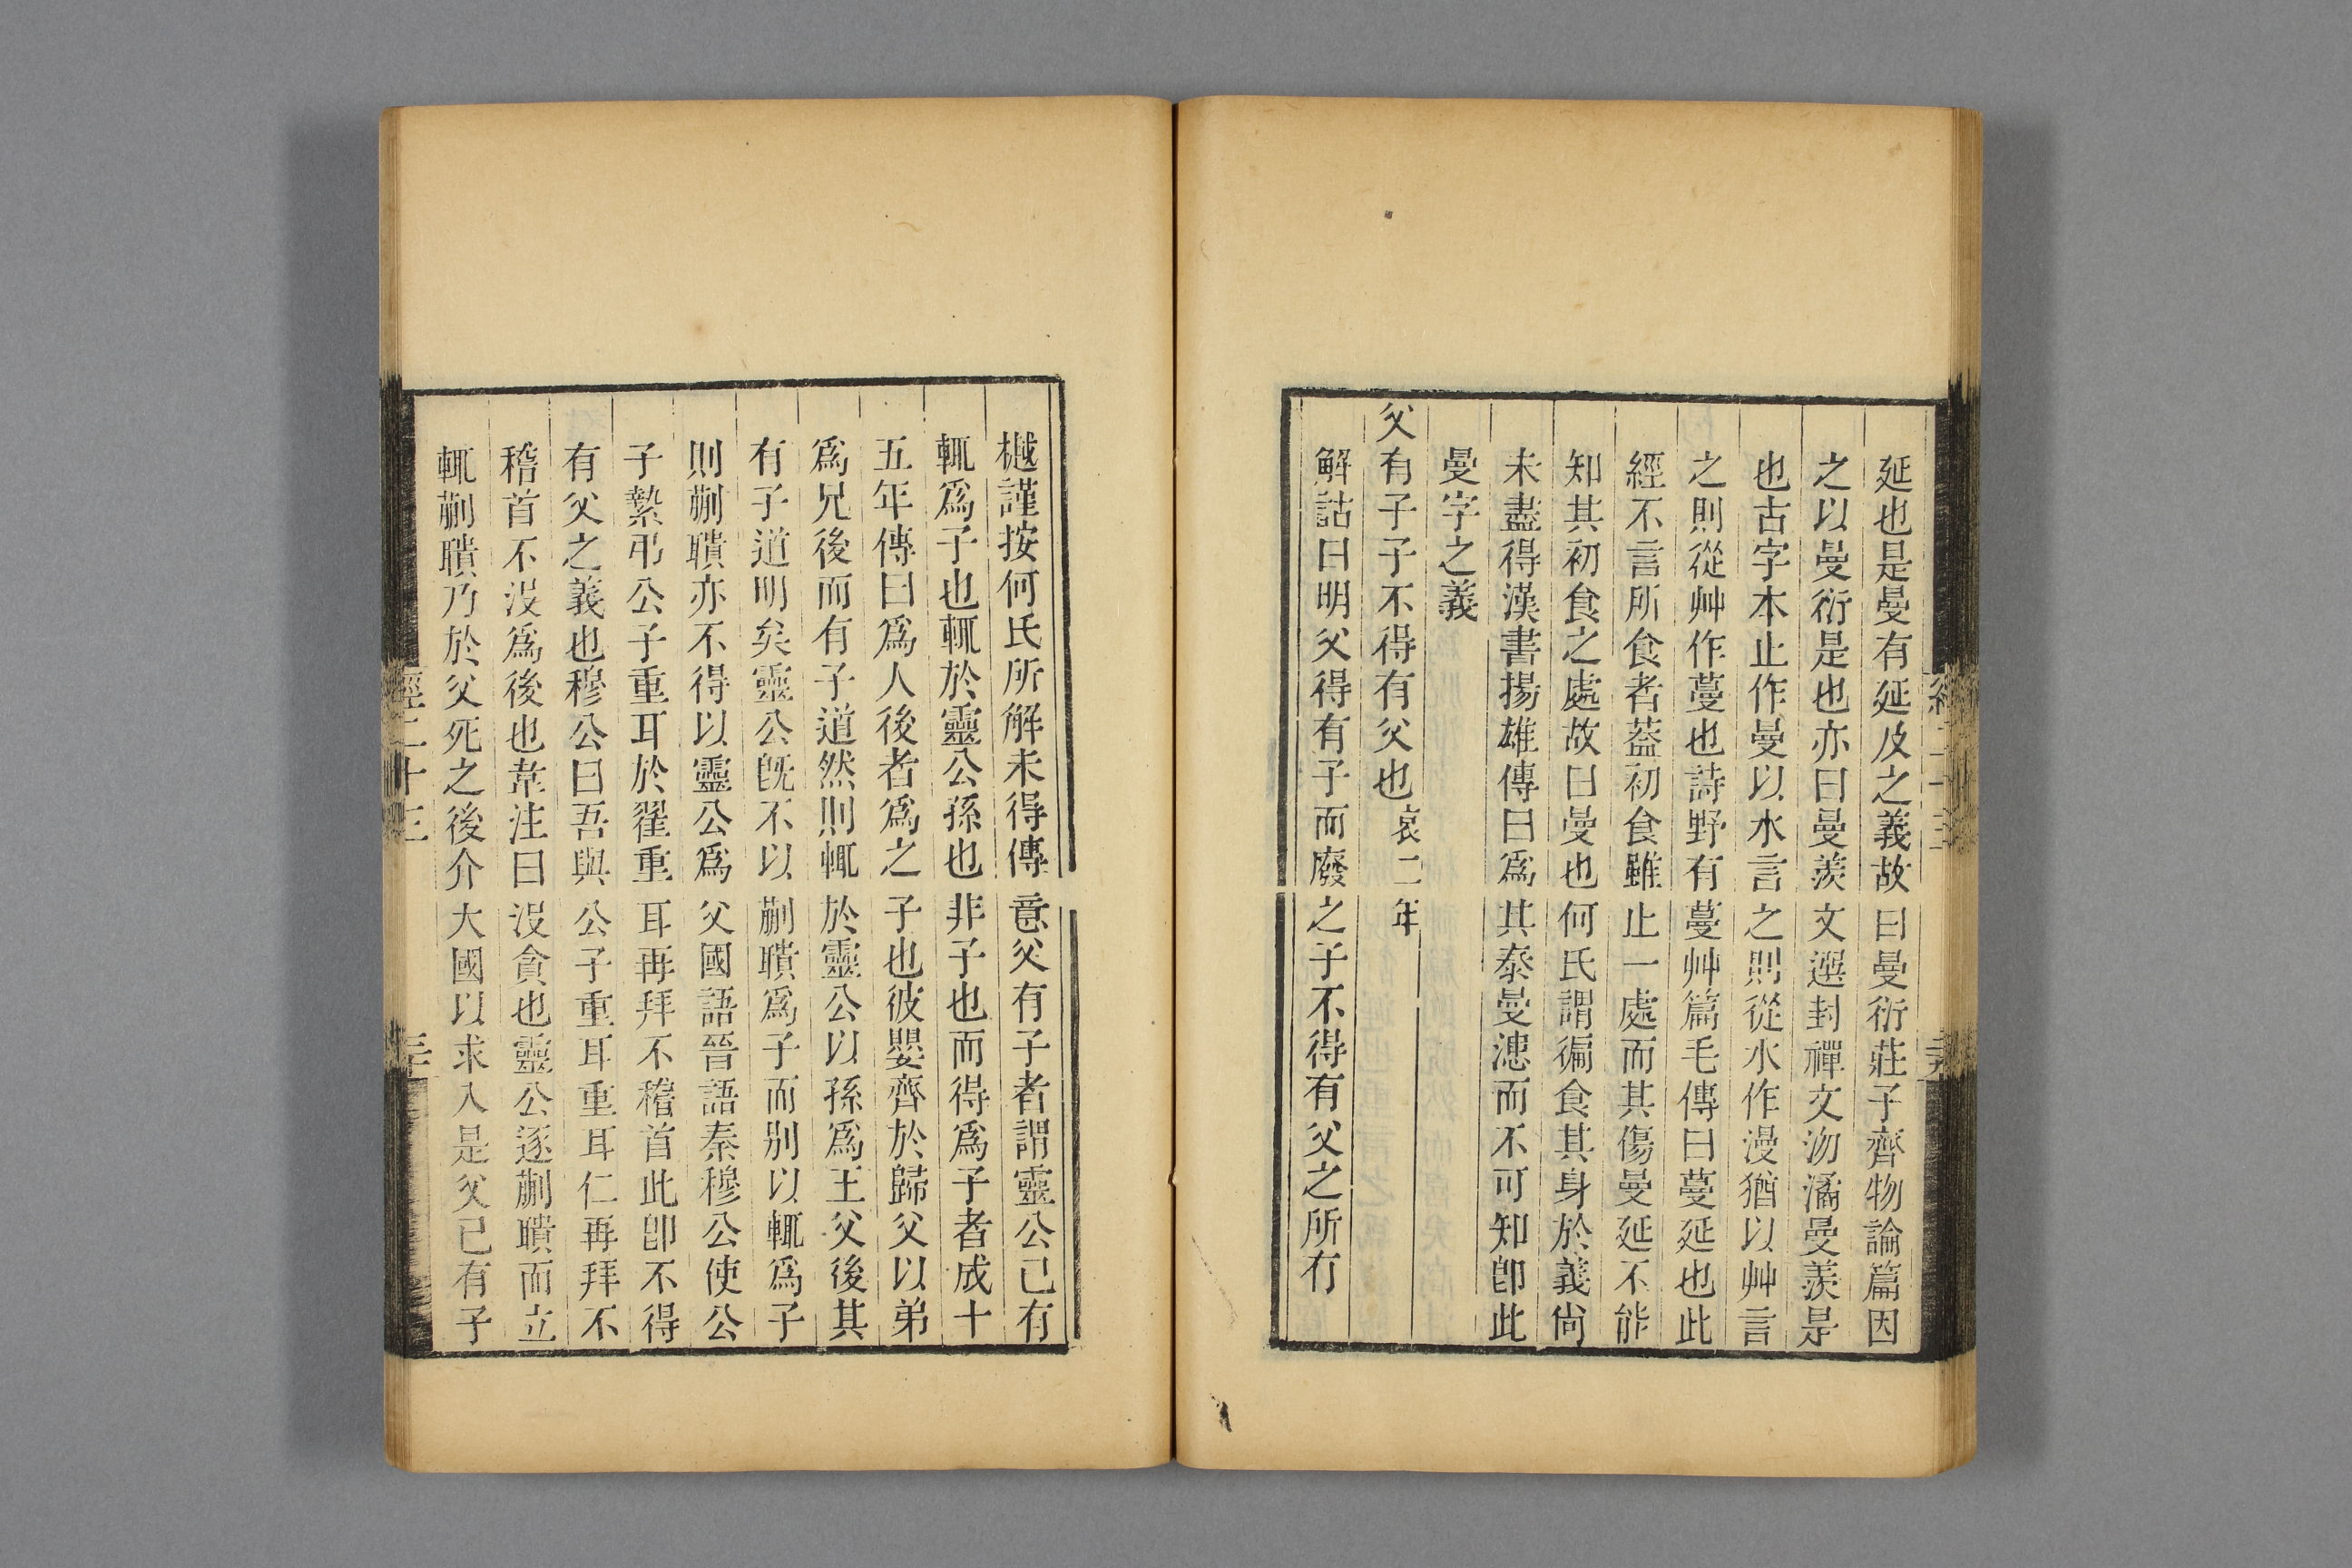 延也是曼有延及之義故曰曼衍莊子齊物論篇因
之以曼衍是也亦曰曼羨文選封禪文沕潏曼羨是
也古字本止作曼以水言之則從水作漫猶以艸言
之則從艸作蔓也詩野有蔓艸篇毛傳曰蔓延也此
經不言所食者葢初食雖止一處而其傷曼延不能
知其初食之處故曰曼也何氏謂徧食其身於義尙
未盡得漢書揚雄傳曰爲其泰曼漶而不可知卽此
曼字之義
父有子子不得有父也哀二年
解詁曰明父得有子而廢之子不得有父之所有
樾謹按何氏所解未得傳意父有子者謂靈公已有
輒爲子也輒於靈公孫也非子也而得爲子者成十
五年傳曰爲人後者爲之子也彼嬰齊於歸父以弟
爲兄後而有子道然則輒於靈公以孫爲王父後其
有子道明矣靈公旣不以蒯聵爲子而別以輒爲子
則蒯聵亦不得以靈公爲父國語晉語秦穆公使公
子縶弔公子重耳於翟重耳再拜不稽首此卽不得
有父之義也穆公曰吾與公子重耳重耳仁再拜不
稽首不沒爲後也韋注曰沒貪也靈公逐蒯聵而立
輒蒯聵乃於父死之後介大國以求入是父已有子
經二十三
三十